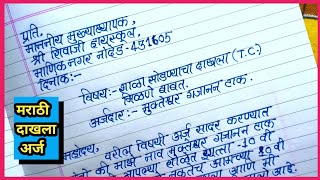 प्रति,
माननीय मुख्याध्यापक,
श्री शिवाजी हायस्कूल,
माणिक नगर नांदेड-431605
दिनांक:-
विषय:- शाळा सोडण्याचा दाखला (T.C.)
मिळणे बाबत.
अर्जदार:- मुक्तेश्वर गजानन हाक.
महोदय,
वरील विषयी अर्ज सादर करण्यात
येतो की माझे नाव मुक्तेश्वर गजानन हाक
आपल्या शाळेत इयत्ता-10 वी
नुकतेच आमच्या 10 वी
आणि मी
आहे.
मराठी
दाखला
अर्ज